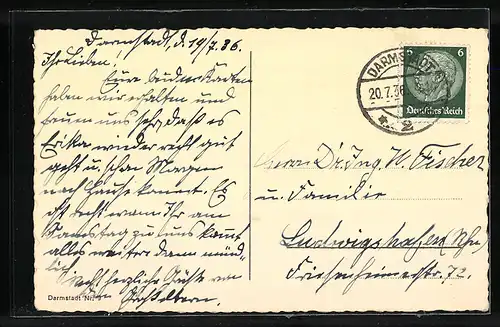 Darmstadt, d. 19/7. 36.
Ihr Lieben!
Eure beiden Karten
haben wir erhalten und
freuen uns sehr, daß es
Erika wieder recht gut
geht u. schon Morgen
nach Hause kommt. Es
ist recht wenn Ihr am
Samstag zu uns kommt
alles weitere dann münd-
lich.
Recht herzliche Grüße von
Darmstadt Nr.
DARMSTADT
20.7.36
2
6 6
Deutsches Reich
Herrn Dr. Ing. W. Fischer
u. Familie
Ludwigshafen/Rhn.
Friesenheimerstr. 72.